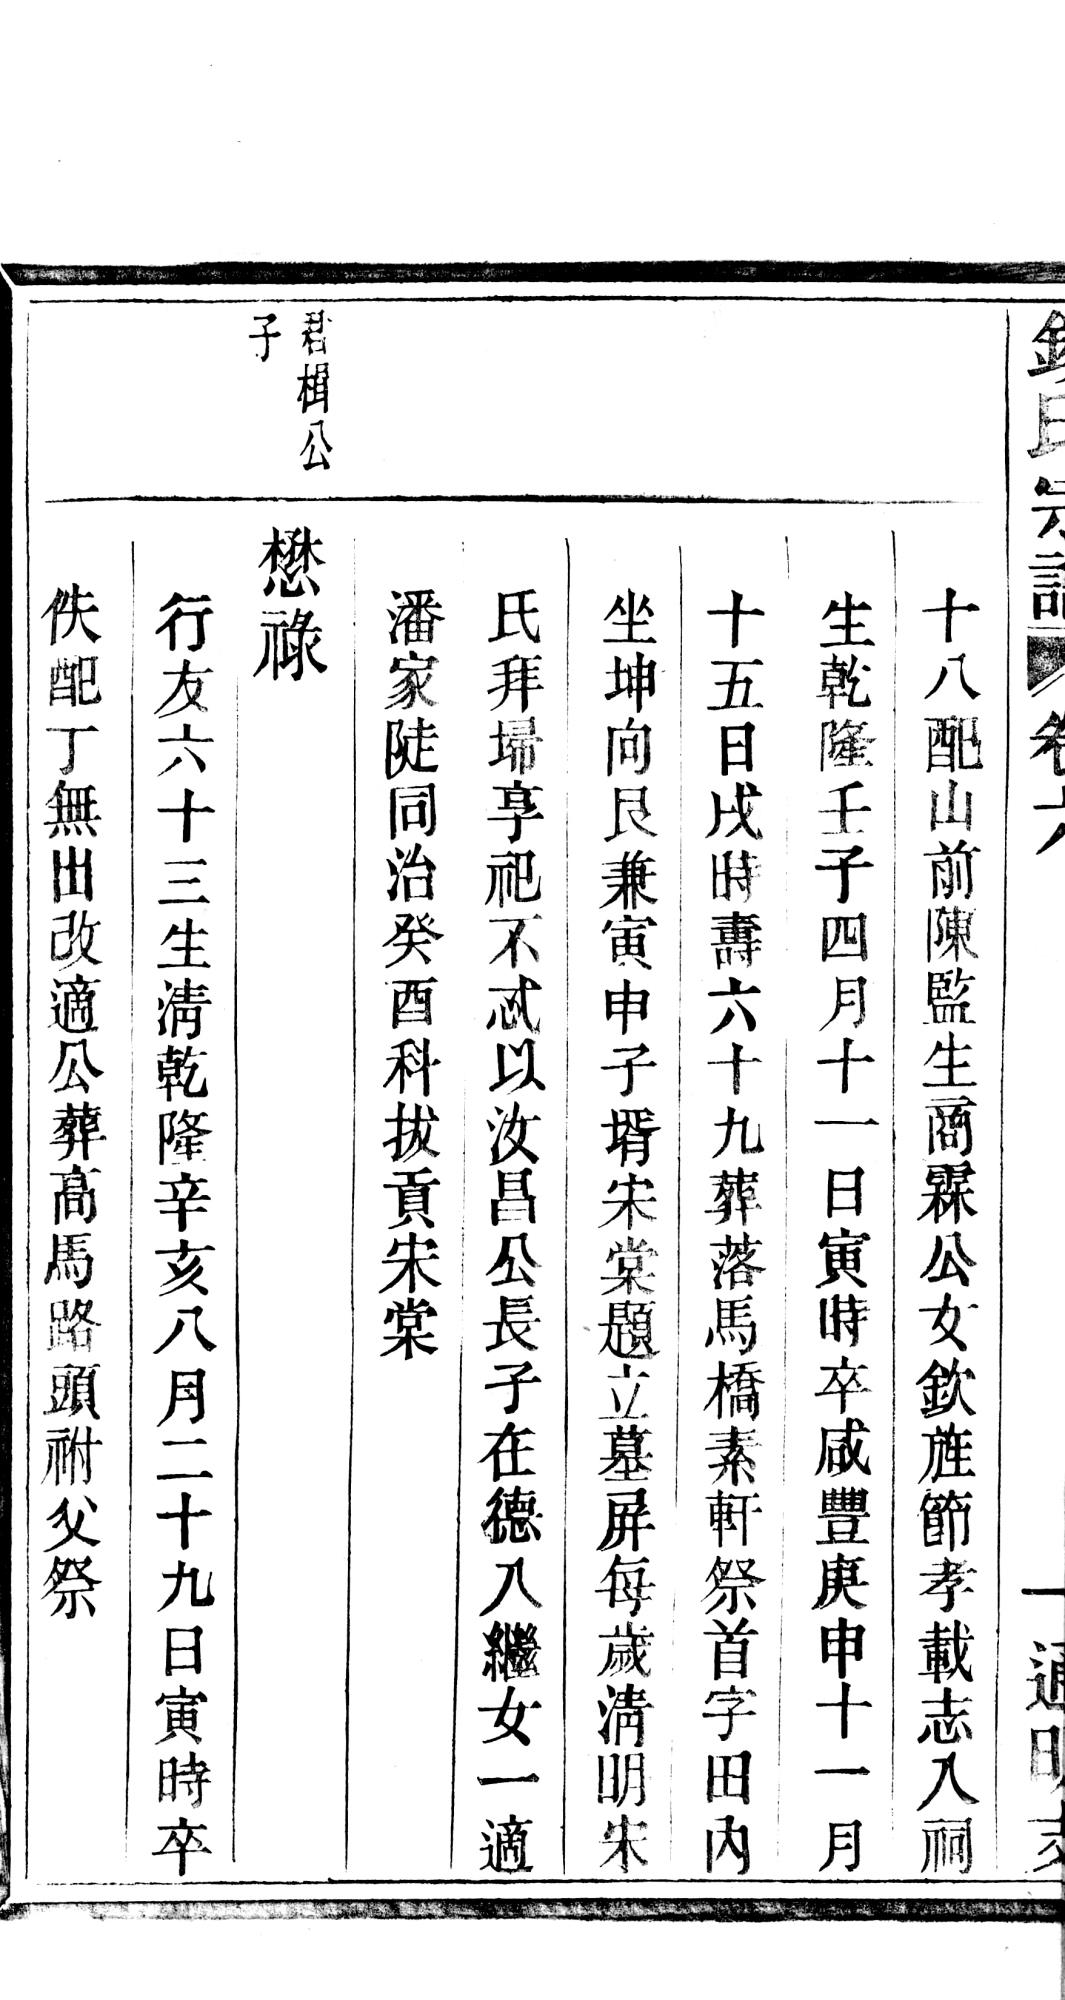 氏宗譜 卷六 一 通明支
十八配山前陳監生商霖公女欽旌節孝載志入祠
生乾隆壬子四月十一日寅時卒咸豐庚申十一月
十五日戌時壽六十九葬落馬橋素軒祭首字田內
坐坤向艮兼寅申子壻宋棠題立墓屏每歲清明宋
氏拜埽享祀不忒以汝昌公長子在德入繼女一適
潘家陡同治癸酉科拔貢宋棠
君楫公
子
懋祿
行友六十三生清乾隆辛亥八月二十九日寅時卒
佚配丁無出改適公葬高馬路頭祔父祭